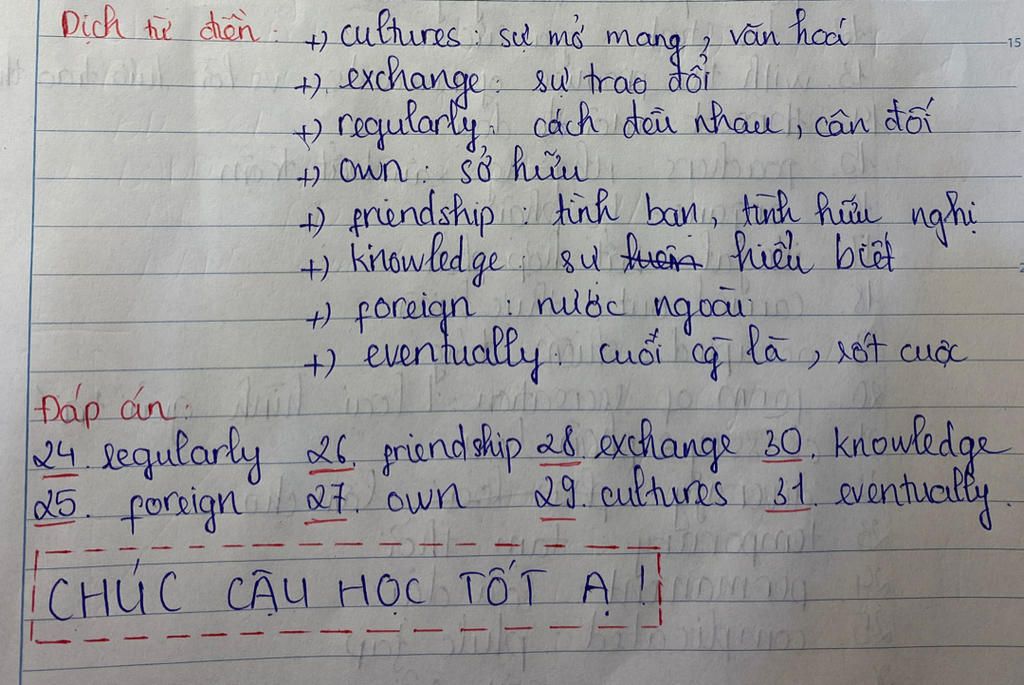 Dịch từ điển: +) cultures: sự mở mang, văn hoá
+) exchange: sự trao đổi
+) regularly: cách đều nhau, cân đối
+) own: sở hữu
+) friendship: tình bạn, tình hữu nghị
+) knowledge: sự hiểu biết
+) foreign: nước ngoài
+) eventually: cuối cg̀ là, rốt cuộc
Đáp án:
24. regularly 26. friendship 28. exchange 30. knowledge
25. foreign 27. own 29. cultures 31. eventually.
CHÚC CẬU HỌC TỐT Ạ!